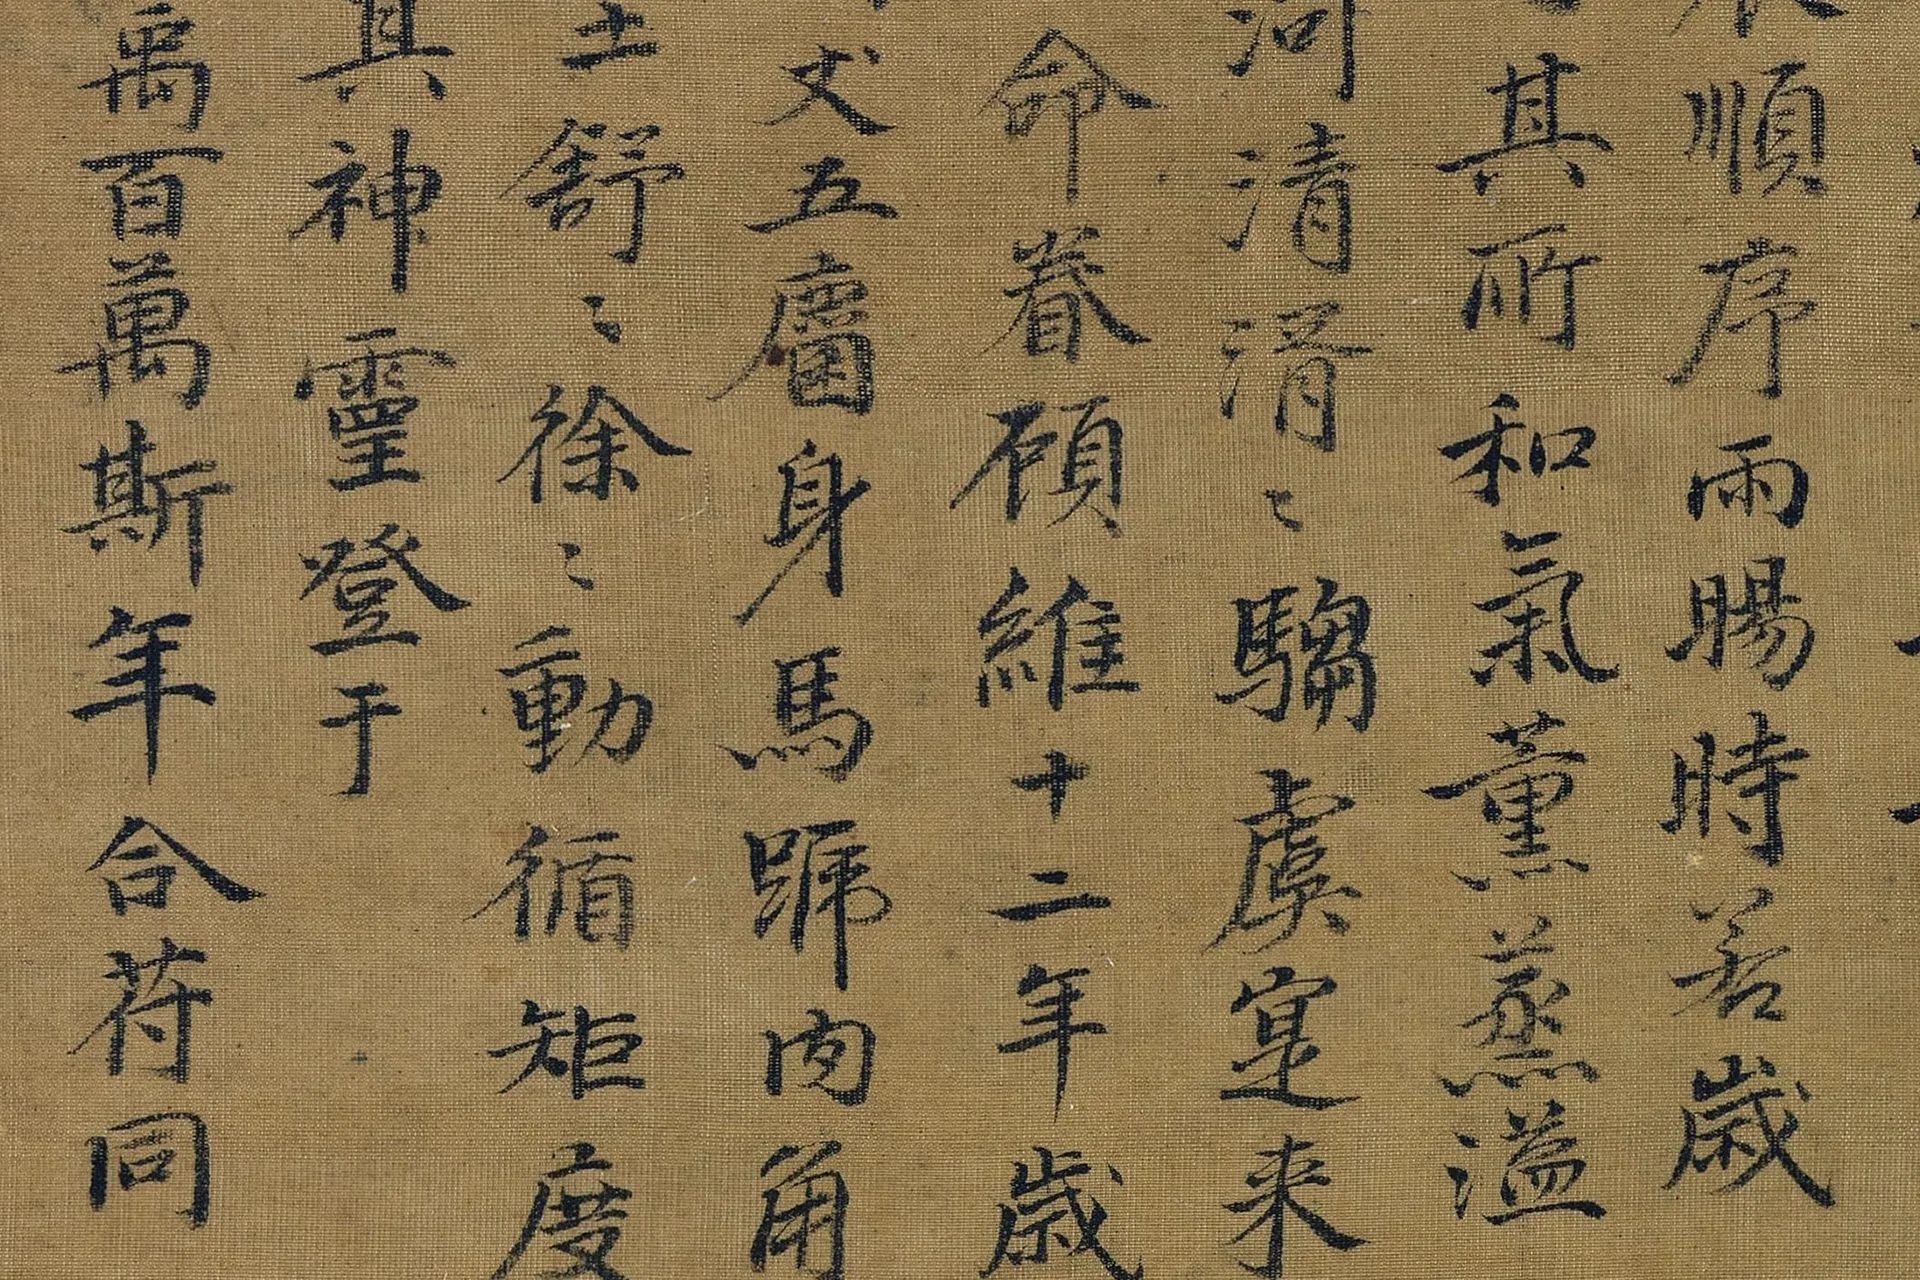 順序雨暘時若歲
其所和氣薰蒸溢
河清湑〻騶虞寔來
命眷顧維十二年歲
丈五麕身馬蹄肉角
舒〻徐〻動循矩度
其神靈登于
萬百萬斯年合符同